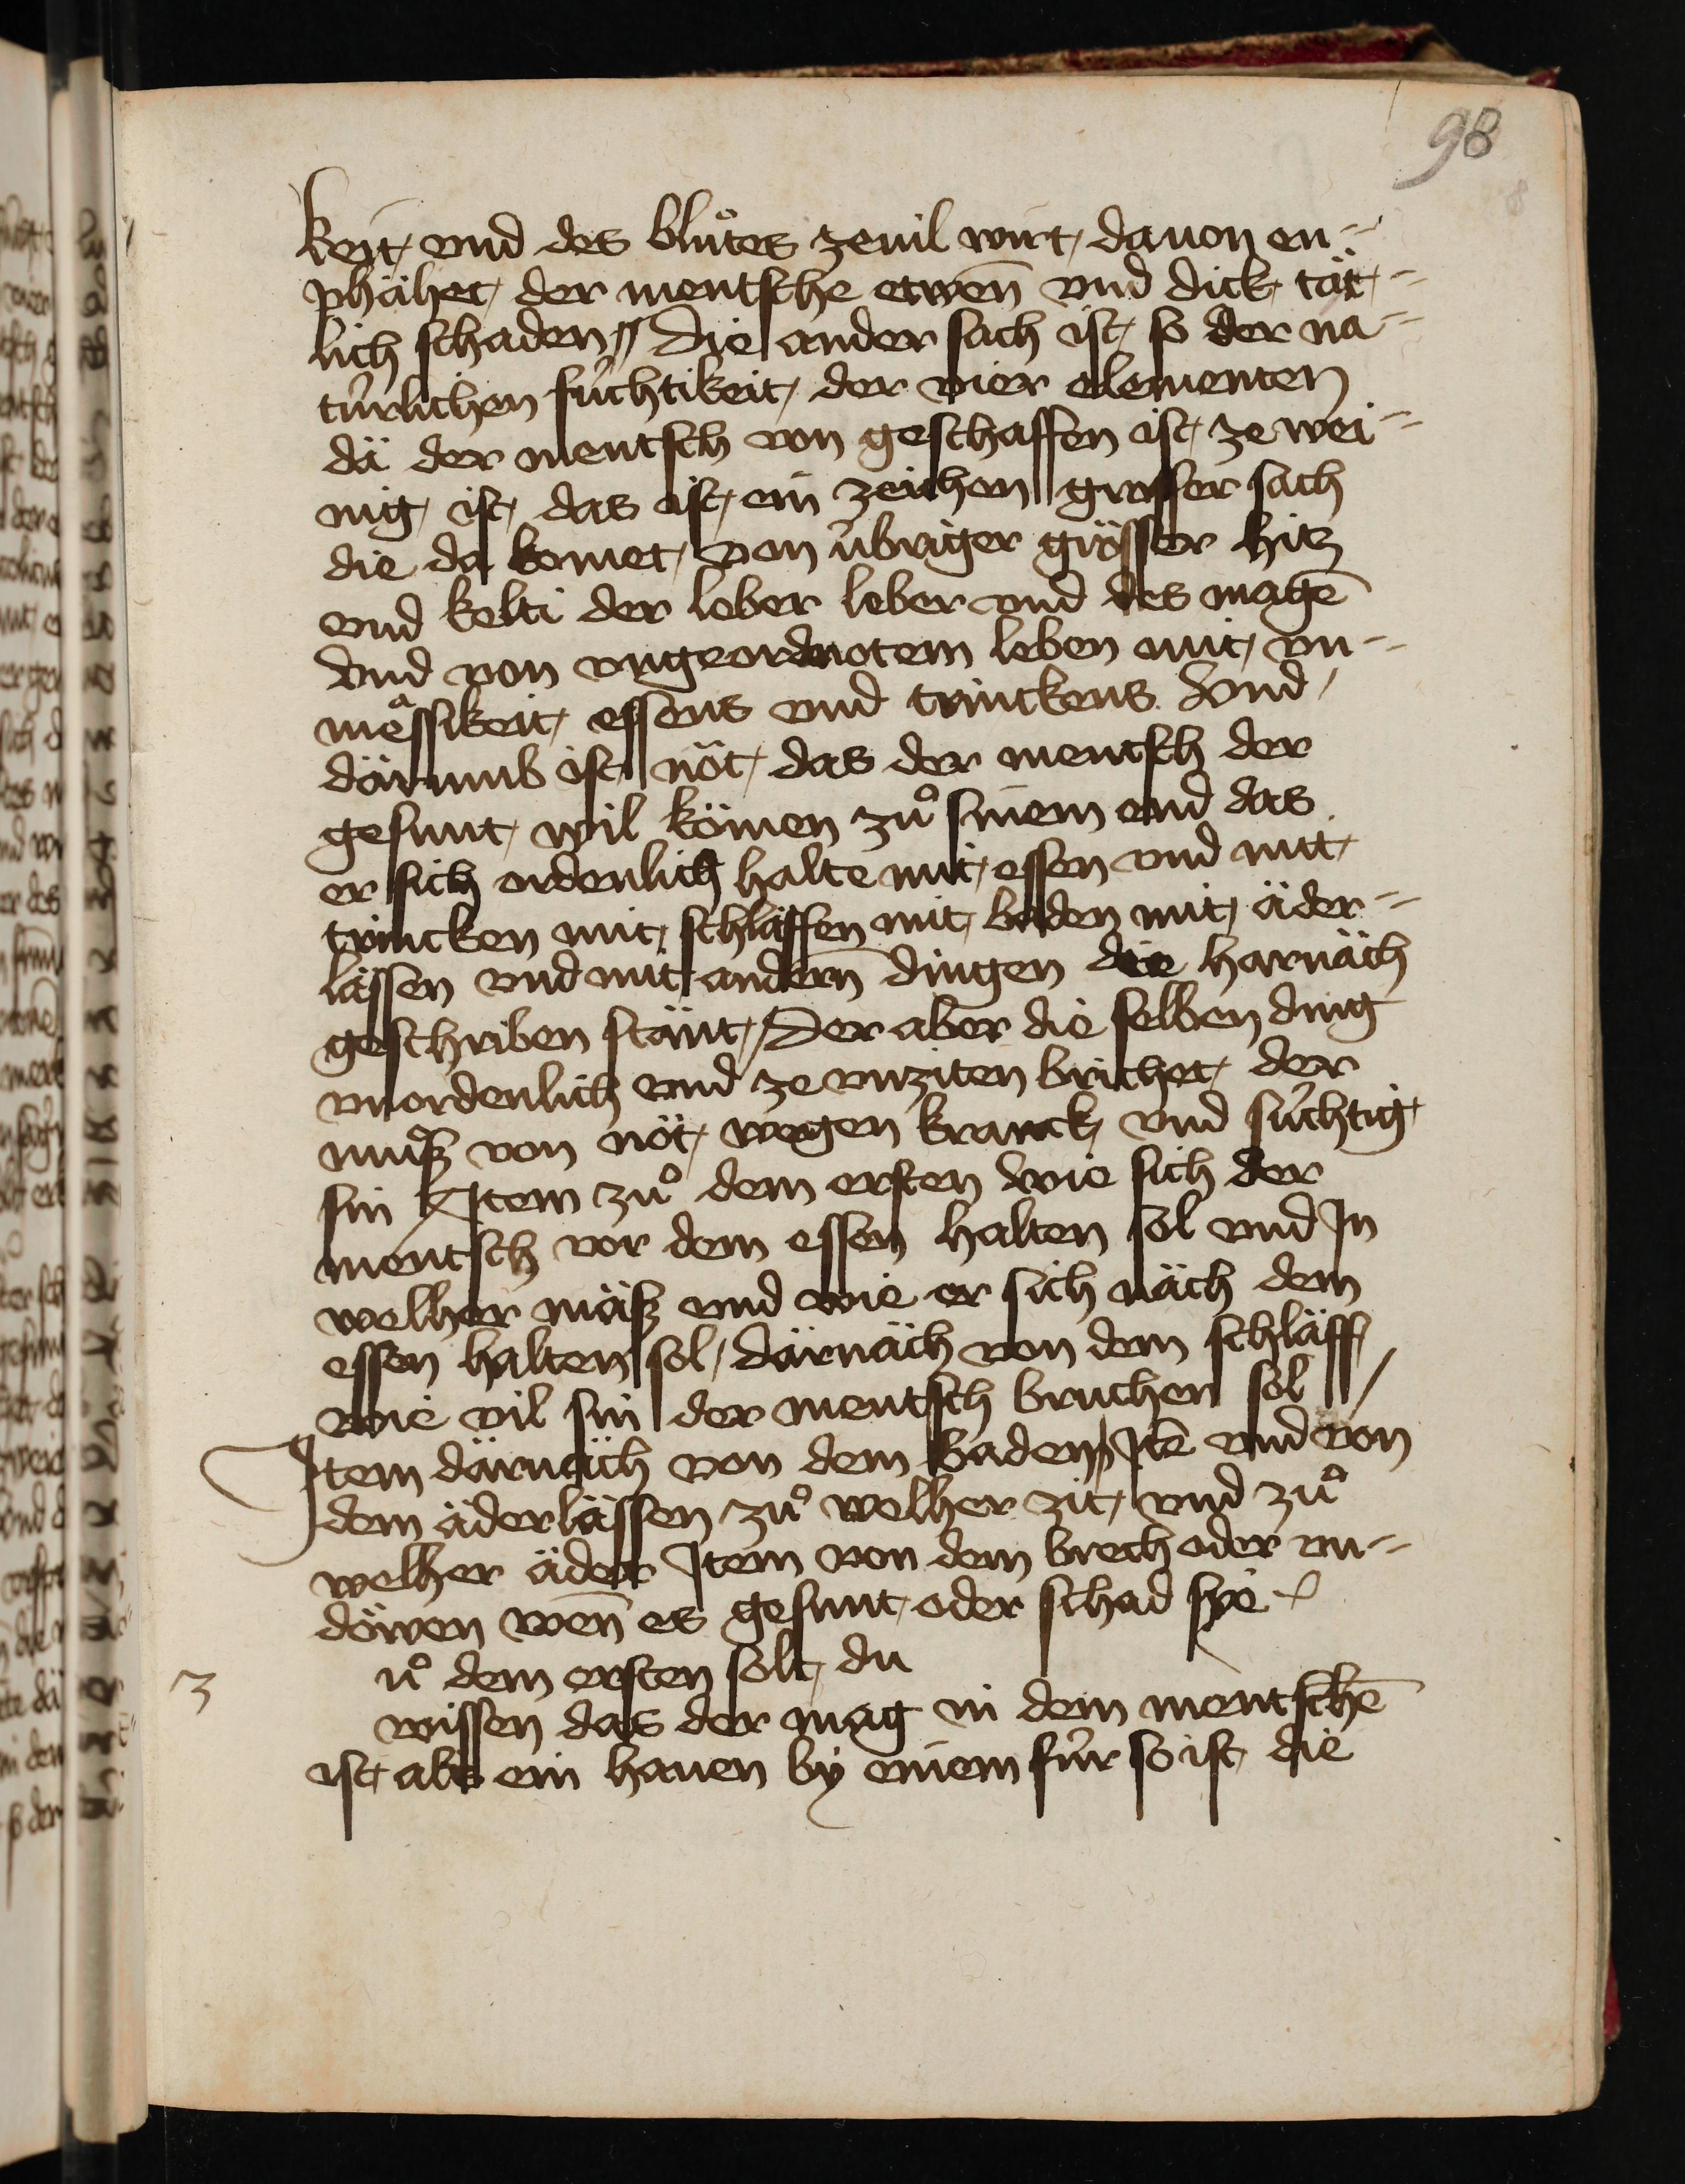 98
keit und des bluͦtes zeuil wirt / dauon en=
phähet / der mentsche etwen̄ vnd dick tät=
lich schaden // Die ander sach ist / so der na=
túrlichen fúchtikeit / der vier elementen
dä der mentsch von geschaffen ist / ze wei=
nig ist / das ist / ein zeichen grosser sach
die da komet / von úbriger grösser hitz
vnd kelti der leber leber vnd des magē
vnd von vngeordnotem leben mit / vn=
mässikeit / essens vnd trinckens Vnd /
därumb ist / nöt / das der mentsch der
gesunt / wil kömen zuͦ sinem end das
er sich ordenlich halte mit / essen vnd mit /
trincken mit / schläffen mit / baden mit / äder=
lässen vnd mit andern̄ dingen die harnäch
geschriben stänt / Der aber die selben ding
vnordenlich vnd ze vnziten brichet / der
muͦsz von nöt / wegen kranck vnd súchtig
sin Item zuͦ dem ersten wie sich der
mentsch vor dem essen halten sol vnd In
welher mäsz vnd wie er sich näch dem
essen halten sol / därnäch von dem schläff /
wie vil sin der mentsch bruchen sol /
Item därnäch von dem baden // Itē vnd von
dem äderlässen zuͦ welher zit / vnd zuͦ
welher äder Item von dem brech oder vn=
döwen wen̄ es gesunt / oder schad sye
z uͦ dem ersten solt / du
wissen das der mag in dem mentschē
ist / als ein hauen by einem fúr so ist / die